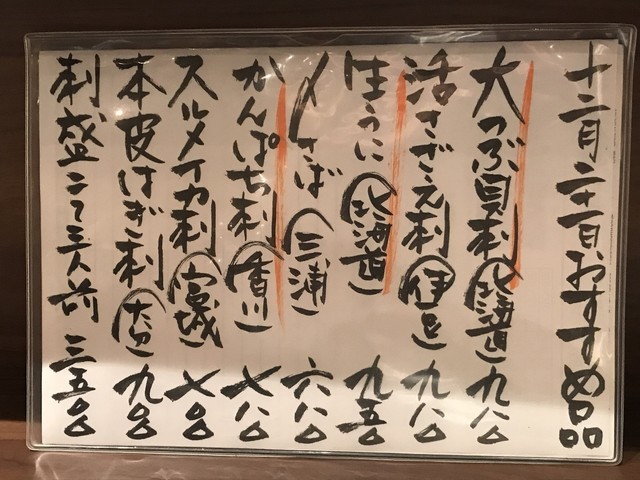 十二月二十一日おすすめ品
大つぶ貝刺（北海道）九八〇
活さざえ刺（伊豆）九八〇
生うに（北海道）九五〇
〆さば（三浦）六八〇
かんぱち刺（香川）七八〇
スルメイカ刺（宮城）七八〇
本皮はぎ刺（大分）九八〇
刺盛二〜三人前 三五〇〇